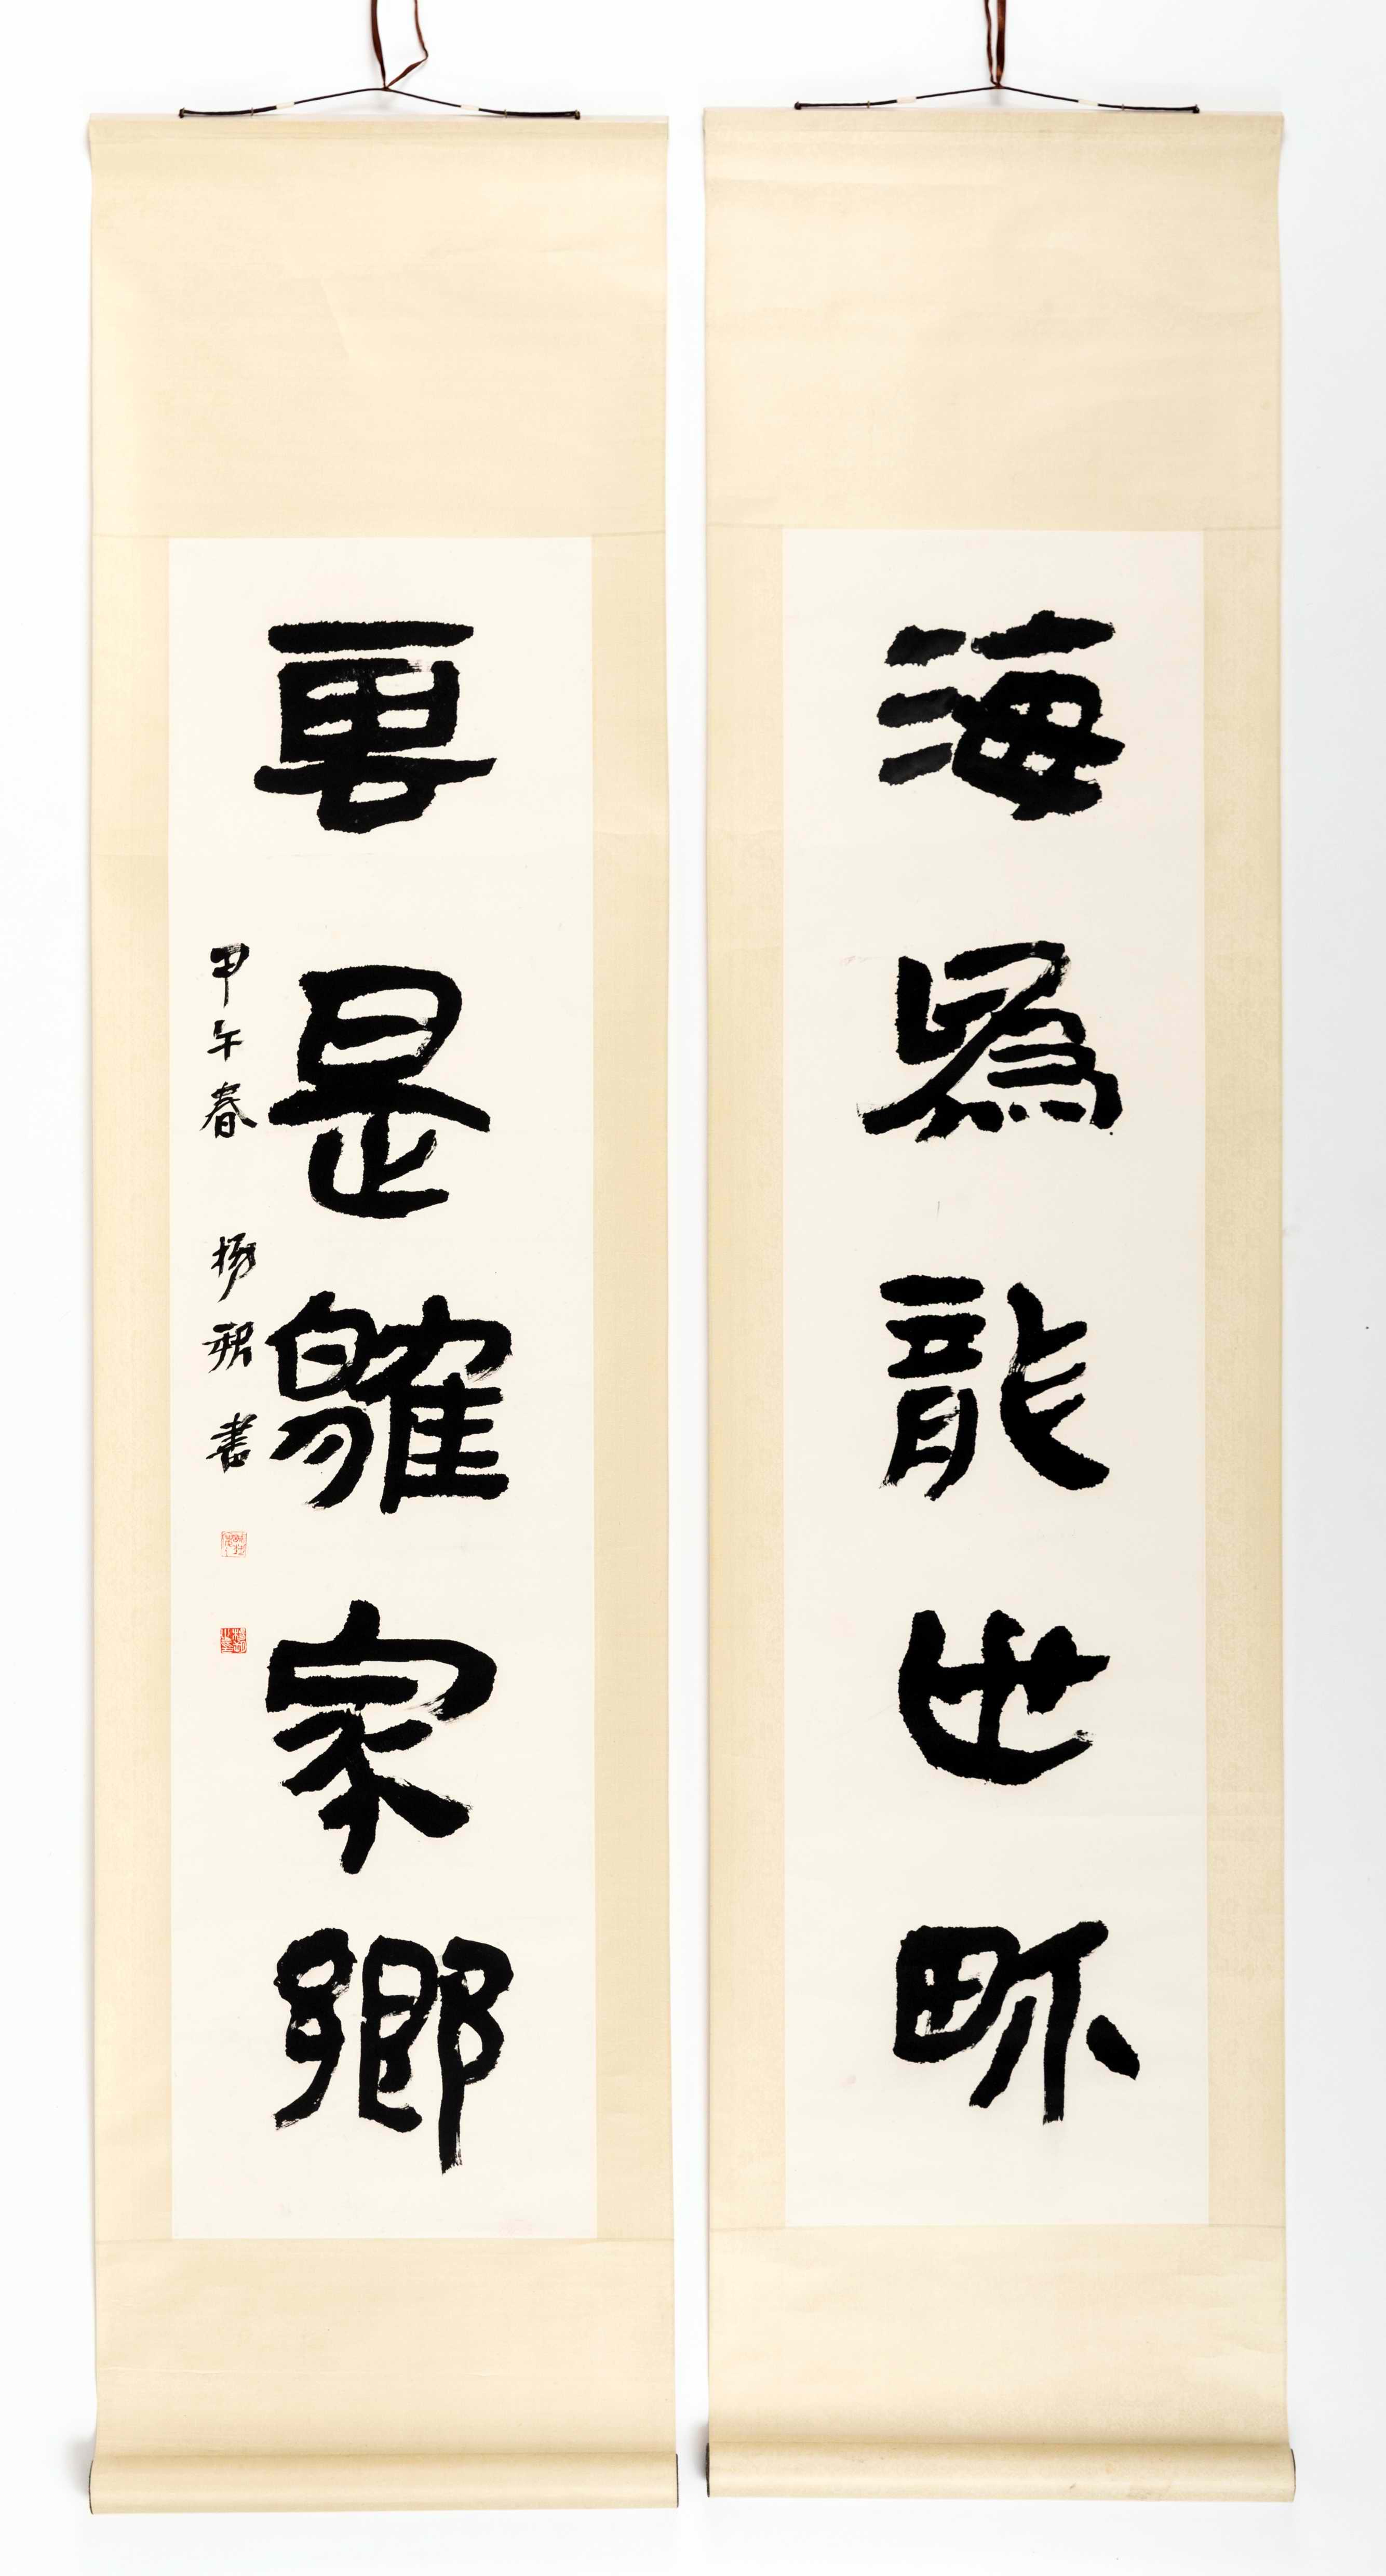 海為龍世畍
雲是鶴家鄉
甲午春 楊 書